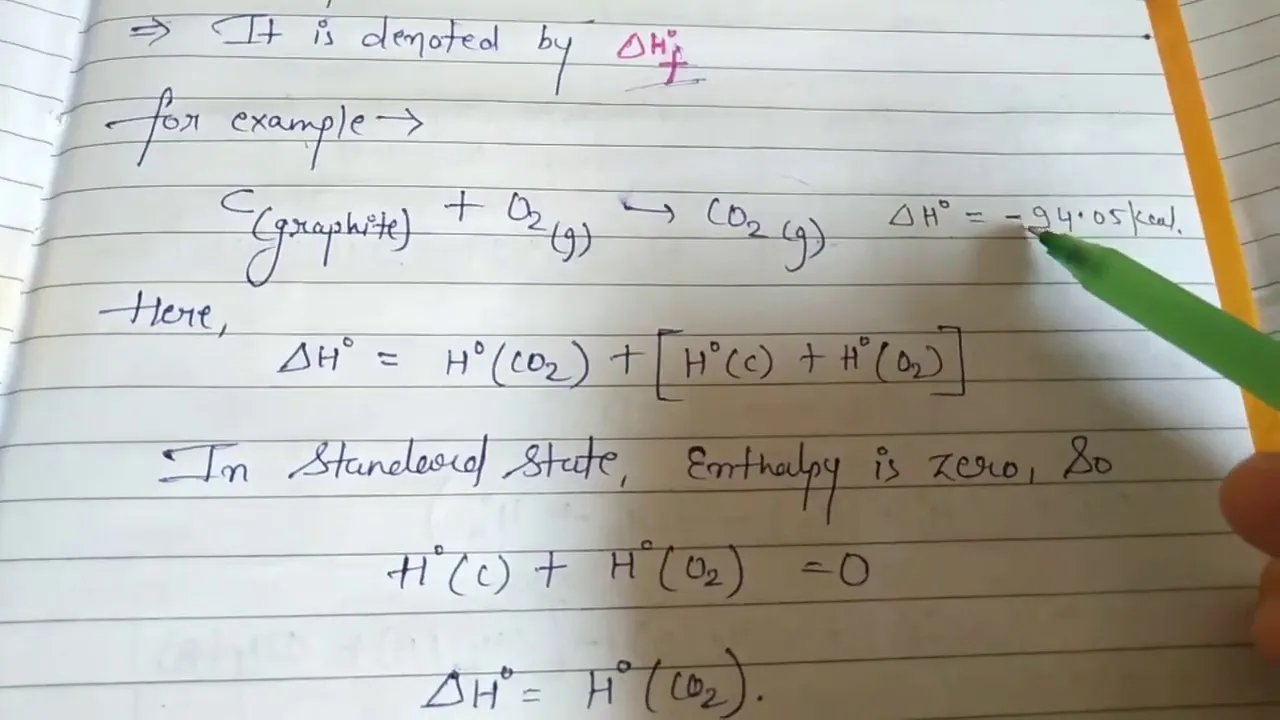 ⇒ It is denoted by ΔH°f
for example →
C(graphite) + O2(g) → CO2(g) ΔH° = -94.05 kcal.
Here,
ΔH° = H°(CO2) + [H°(C) + H°(O2)]
In Standered State, Enthalpy is zero, So
H°(C) + H°(O2) = 0
ΔH° = H°(CO2).